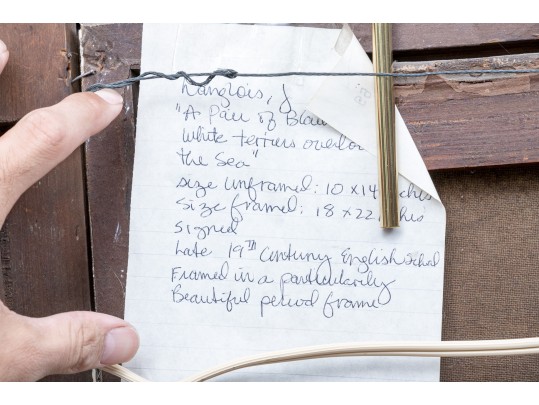 Langlois, J
"A Pair of
White terriers
the Sea"
size unframed: 10 x 14
size framed: 18 x 22
signed
Late 19TH Century English School
Framed in a particularily
Beautiful period frame